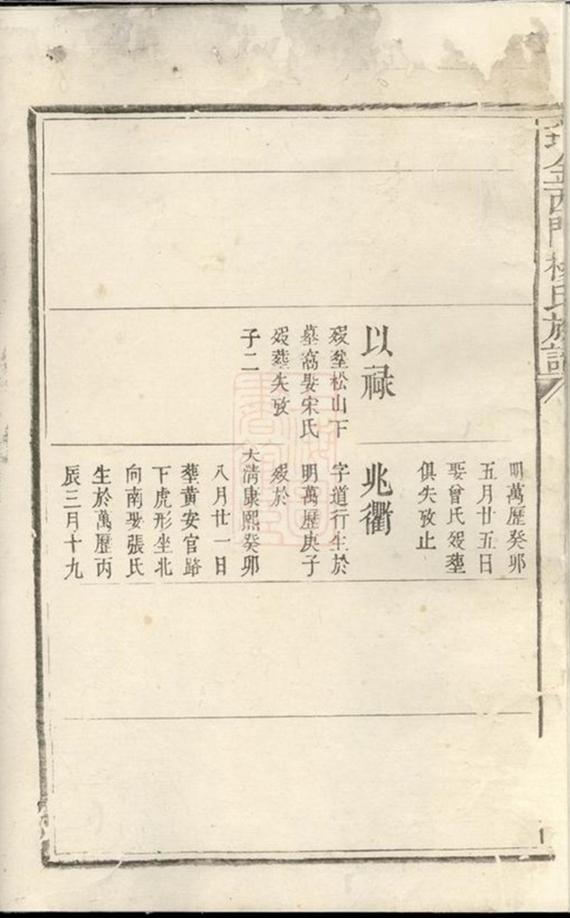 金西門楊氏族譜
以祿
歿塟松山下
墓窩娶宋氏
歿葬失攷
子二
明萬歷癸卯
五月廿五日
娶曾氏歿塟
俱失攷止
兆衢
字道行生於
明萬歷庚子
歿於
大清康熙癸卯
八月廿一日
塟黄安官路
下虎形坐北
向南娶張氏
生於萬歷丙
辰三月十九